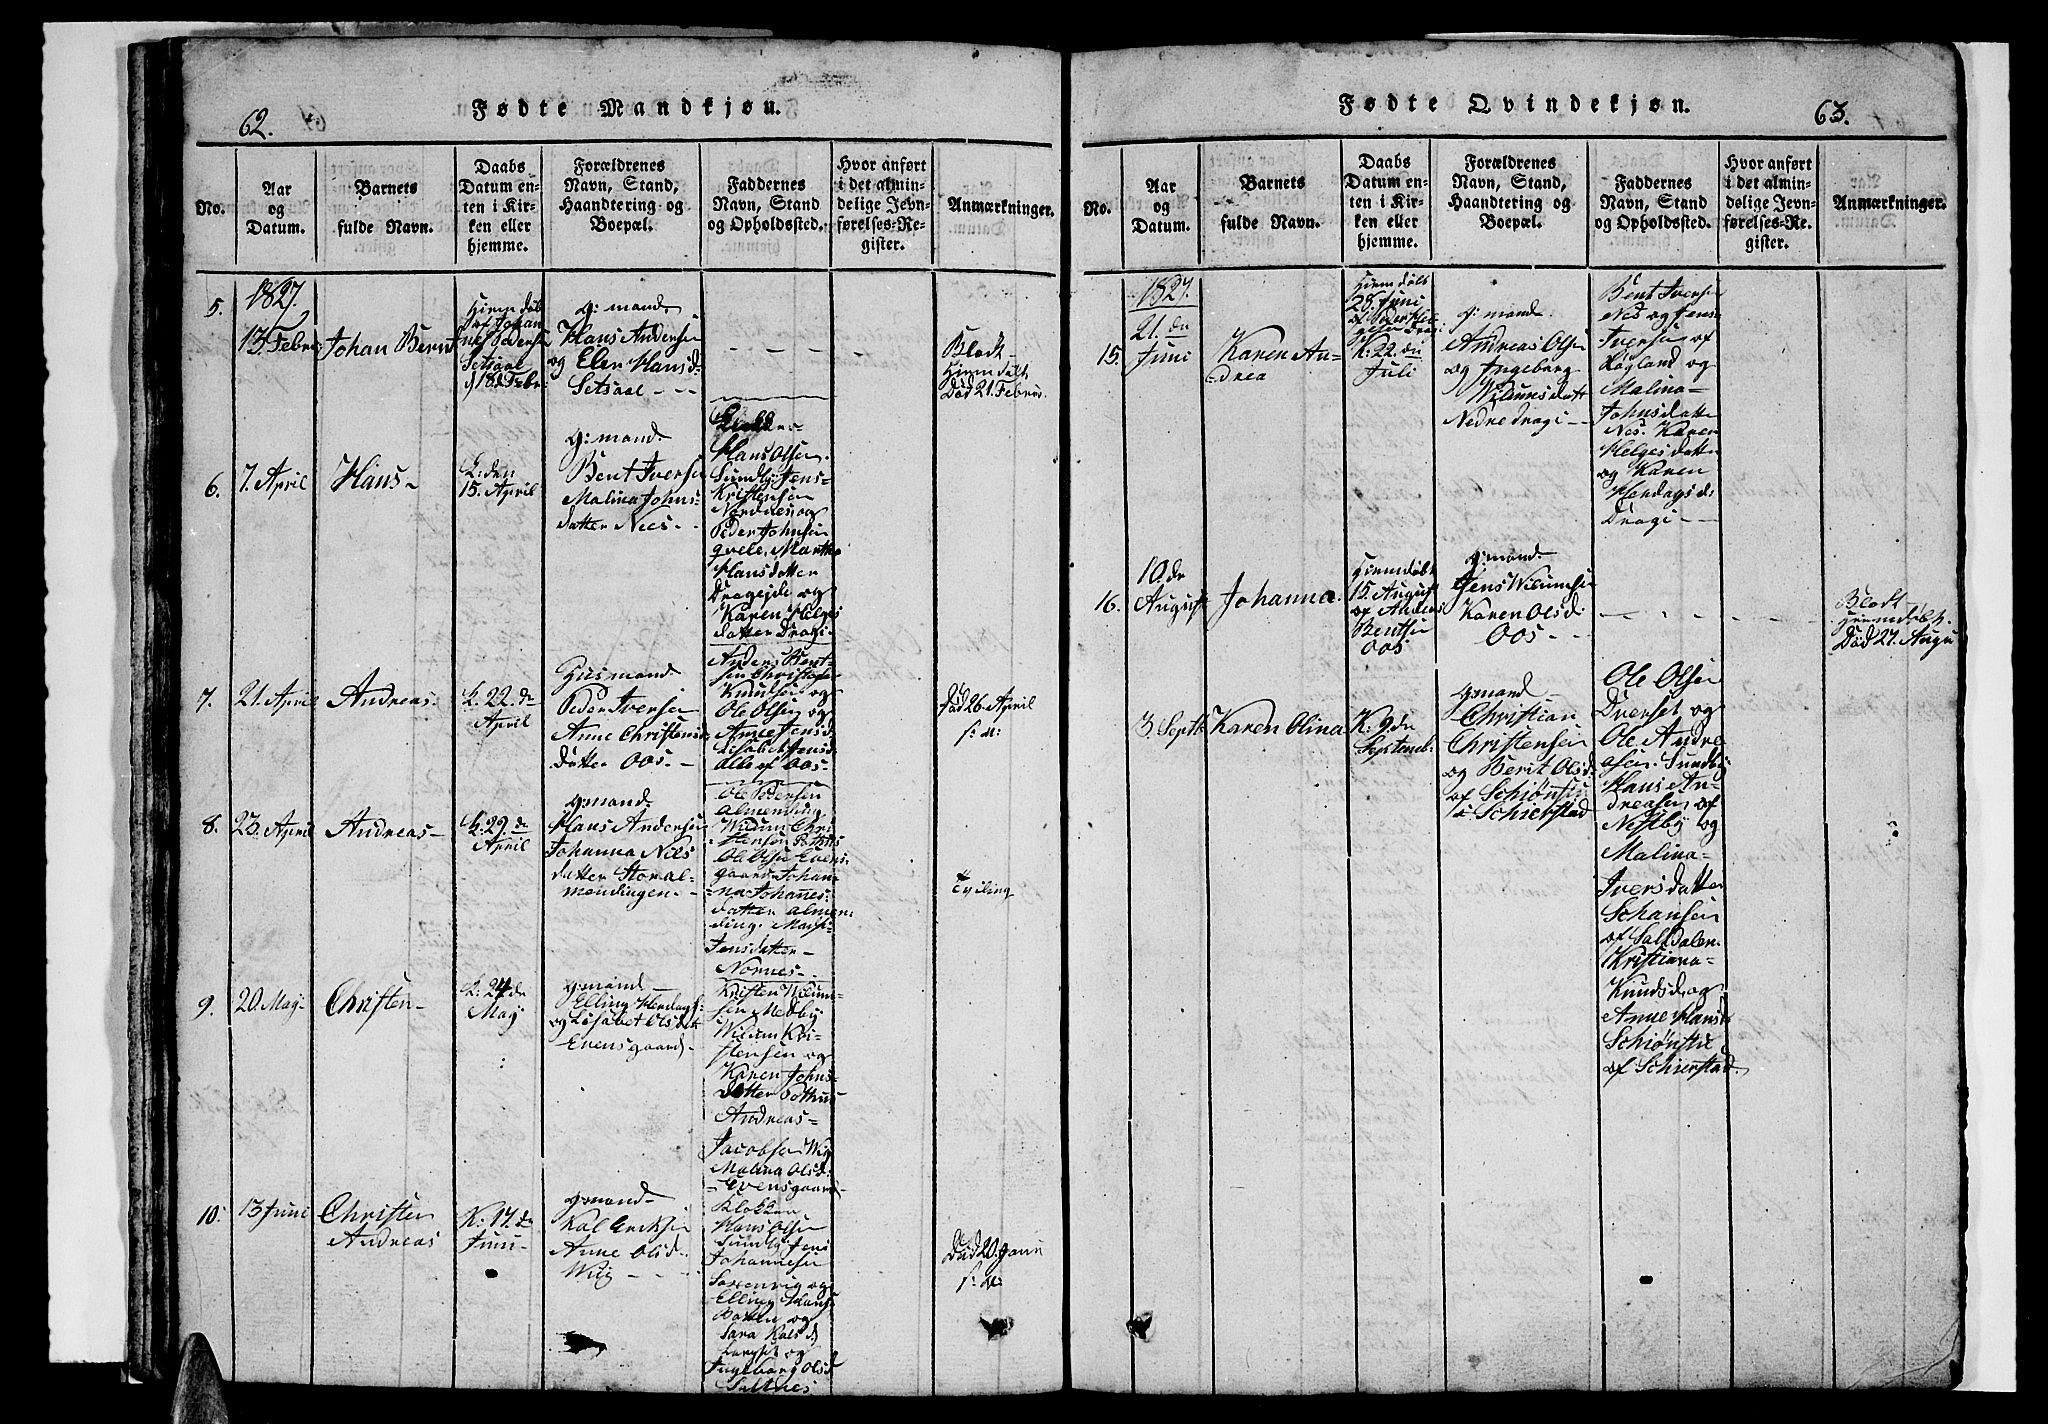 62.
Fødte Mandkjøn.
No.
Aar
og
Datum.
Barnets
fulde Navn.
Daabs
Datum en-
ten i Kir-
ken eller
hjemme.
Forældrenes
Navn, Stand,
Haandtering og
Boepæl.
Faddernes
Navn, Stand
og Opholdssted.
Hvor anført
i det almin-
delige Jevn-
førelses-Re-
gister.
Anmærkninger.
5.
1827.
13. Febr
Johan Bernt
Hiem døbt
af Johan
nes Peders
Setsaae
d 18d Febr
g: mand
Hans Andersen
og Elen Hansd
Setsaae
Blodt
Hiem døbt
Død 21. Februs.
6.
7. April
Hans
K: den
15. April
g: mand
Bent Iversen
Malina Johns
datter Nees
Klokker
Hans Olsen
Sundby Jens
Kristensen
Nordnes og
Peder Johnsen
qvele, Martha
Hansdatter
Drageide og
Karen Helges
datter Dragi
7.
21. April
Andreas
K. 22. de
April
Husmand
Peder Iversen
Anne Christens
datter Oos
Anders Bent-
sen Christofer
Knudsen og
Ole Olsen og
Anne Jensd
Lisabet Jensd.
alle af Oos
Død 26 April
s: m:
8.
23. April
Andreas
K: 29. de
April
g: mand
Hans Andersen
Johanna Niels
datter Storal-
mendingen
Ole Pedersen
Almending
Wilum Chri
stensen Pothus
Ole Olsen Evens-
gaard Johan-
na Johannes-
datter Almen-
ding.
Jensdatter
Nornes
Tviling
9.
20. May
Christen
K: 24 de
May
g: mand
Elling Hendags:
og Lisabet Olsdatt
Evensgaard
Kristen Wilum-
sen Medby
Wilum Kri-
stensen og
Karen Johns-
datter Pothus
Andreas
Jacobsen Wig
Malina Olsd.
Evensgaard
10.
13 Juni
Christen
Andreas
K: 17. de
Juni
g: mand
Kal Eriksen
Anne Olsd
Wiig
Klokker
Hans Olsen
Sundby Jens
Johannesen
Saxenvig og
Elling Hans
Batten og
Sara Kalsd
og
Ingeborg Olsd
Saltnes
Død 20. Juni
s: m:
Fødte Qvindekjøn.
63.
No.
Aar
og
Datum.
Barnets
fulde Navn.
Daabs
Datum en-
ten i Kir-
ken eller
hjemme.
Forældrenes
Navn, Stand,
Haandtering og
Boepæl.
Faddernes
Navn, Stand
og Opholdssted.
Hvor anført
i det almin-
delige Jevn-
førelses-Re-
gister.
Anmærkninger.
15.
1827.
21. de
Juni
Karen An-
drea
Hiem døbt
28. Juni
af Peder Hel-
gesen Dragi
K: 22. de
Juli
g: mand
Andreas Olsen
og Ingeborg
Wilumsdatt
Nedre Dragi
Bent Iversen
Nes og Jens
Iversen af
Røgland og
Malina
Johnsdatter
Nes. Karen
Helgesdatter
og Karen
Hendagsd:
Dragi
16.
10. de
August
Johanna.
Hiemdøbt
15. August
af Anders
Bentsen
Oos
g: mand
Jens Wilumsen
Karen Olsd:
Oos
Blodt
Hiemdøbt.
Død 27. Augu
3. Septb
Karen Olina
K: 9. de
Septemb:
g: mand
Christian
Christensen
og Berit Olsd
af Schiønsti
i Schierstad
Ole Olsen
Dverset og
Ole Andre
asen Sundby
Hans An-
dreasen af
Nestby og
Malina
Iversdatter
Schansen
af Saltdalen.
Kristiana
Knudsd. og
Anne Hansd
Schiønstie
af Schierstad.